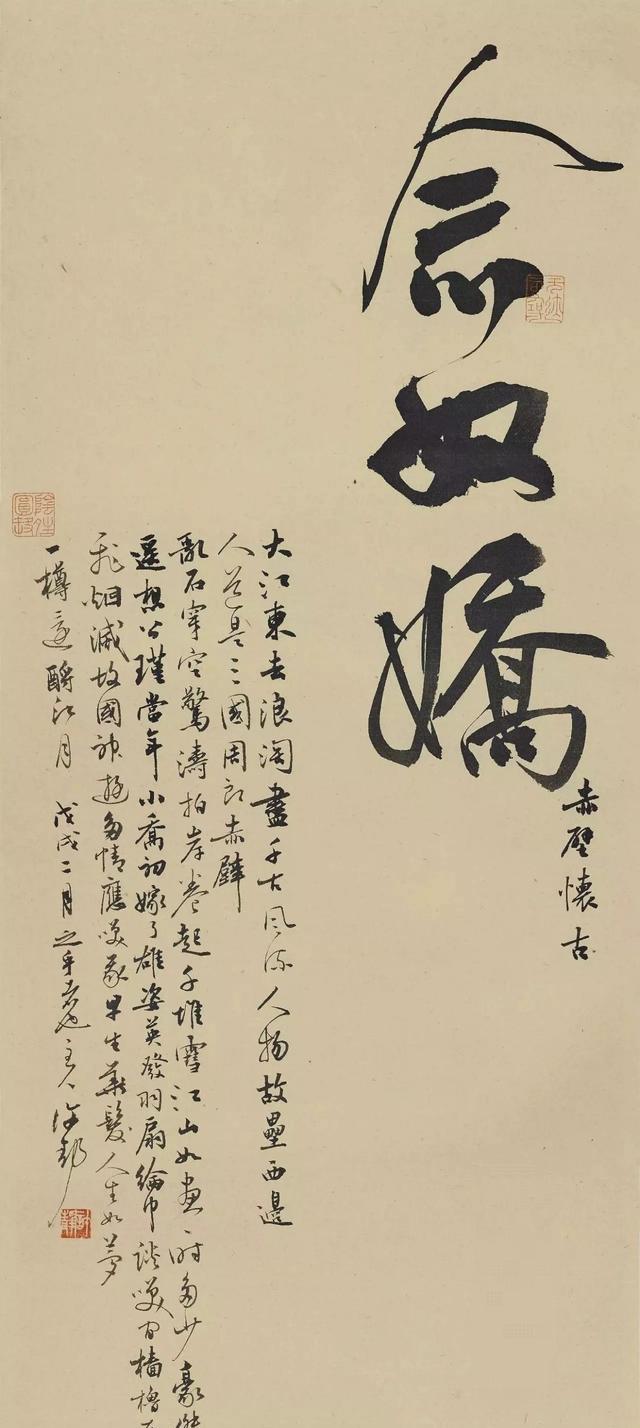 念奴嬌
赤壁懷古
大江東去浪淘盡千古風流人物故壘西邊
人道是三國周郎赤壁
亂石穿空驚濤拍岸卷起千堆雪江山如畫一時多少豪傑
遙想公瑾當年小喬初嫁了雄姿英發羽扇綸巾談咲間檣櫓
飛烟滅故國神遊多情應咲我早生華髮人生如夢
一樽還酹江月 戊戌二月 主人